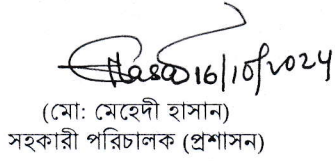 16/10/2024
(মো: মেহেদী হাসান)
সহকারী পরিচালক (প্রশাসন)